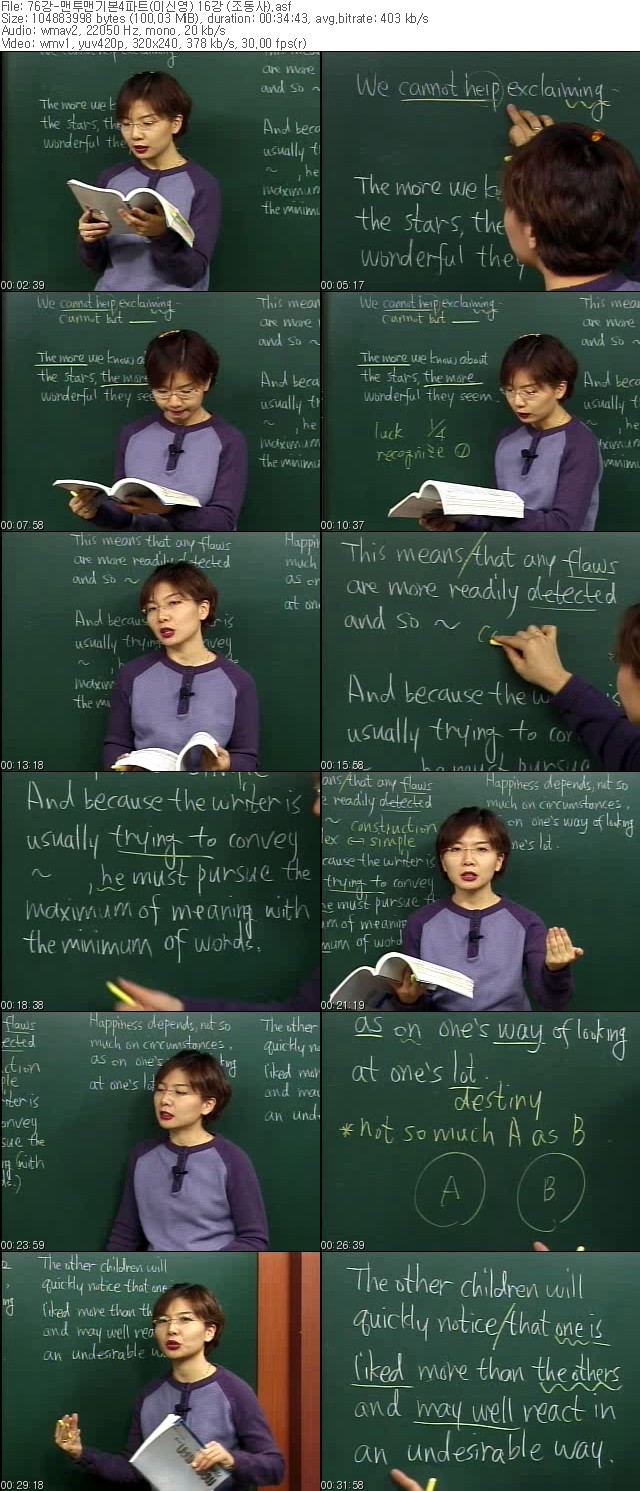 File: 76강-맨투맨기본4파트(이신영) 16강 (조동사).asf
Size: 104883998 bytes (100,03 MiB), duration: 00:34:43, avg,bitrate: 403 kb/s
Audio: wmav2, 22050 Hz, mono, 20 kb/s
Video: wmv1, yuv420p, 320x240, 378 kb/s, 30,00 fps(r)
The more we k
the stars, the
wonderful the
are more
and so ~
And beca
usually t
~ , he
maximum
the minim
00:02:39
We cannot help exclaiming~
The more we k
the stars, the
wonderful they
00:05:17
We cannot help exclaiming~
cannot but
The more we know a
the stars, the more
wonderful they see
This mean
are more
and so ~
And beca
usually t
~ , he
maximum
the minim
00:07:58
We cannot help exclaiming~
cannot but
The more we know about
the stars, the more
wonderful they seem.
luck 1/4
recognize ①
This mean
are more
and so ~
And bec
usually
he
maximum
the minim
00:10:37
This means that any flaws
are more readily detected
and so ~
And because the writer is
usually trying convey
~ , h
maxim
the mi
Happin
much
as on
at one
00:13:18
This means/that any flaws
are more readily detected
and so ~
And because the w
usually trying to con
~ , he must pursue
00:15:58
And because the writer is
usually trying to convey
~ , he must pursue the
maximum of meaning with
the minimum of words.
00:18:38
ans/that any flaws
e readily detected
~ construction
lex ↔ simple
cause the writer is
trying to convey
e must pursue the
mum of meaning
mum of word
Happiness depends, not so
much on circumstances,
on one's way of looking
ne's lot.
00:21:19
flaws
ected
ction
ple
riter is
onvey
sue the
ng (with
ds.)
Happiness depends, not so
much on circumstances,
as on one's king
at one's lot
The other
quickly no
liked mor
and ma
an und
00:23:59
as on one's way of looking
at one's lot.
destiny
*not so much A as B
A B
00:26:39
The other children will
quickly notice that one
liked more than th
and may well rea
an undesirable w
00:29:18
The other children will
quickly notice/that one is
liked more than the others
and may well react in
an undesirable way.
00:31:58